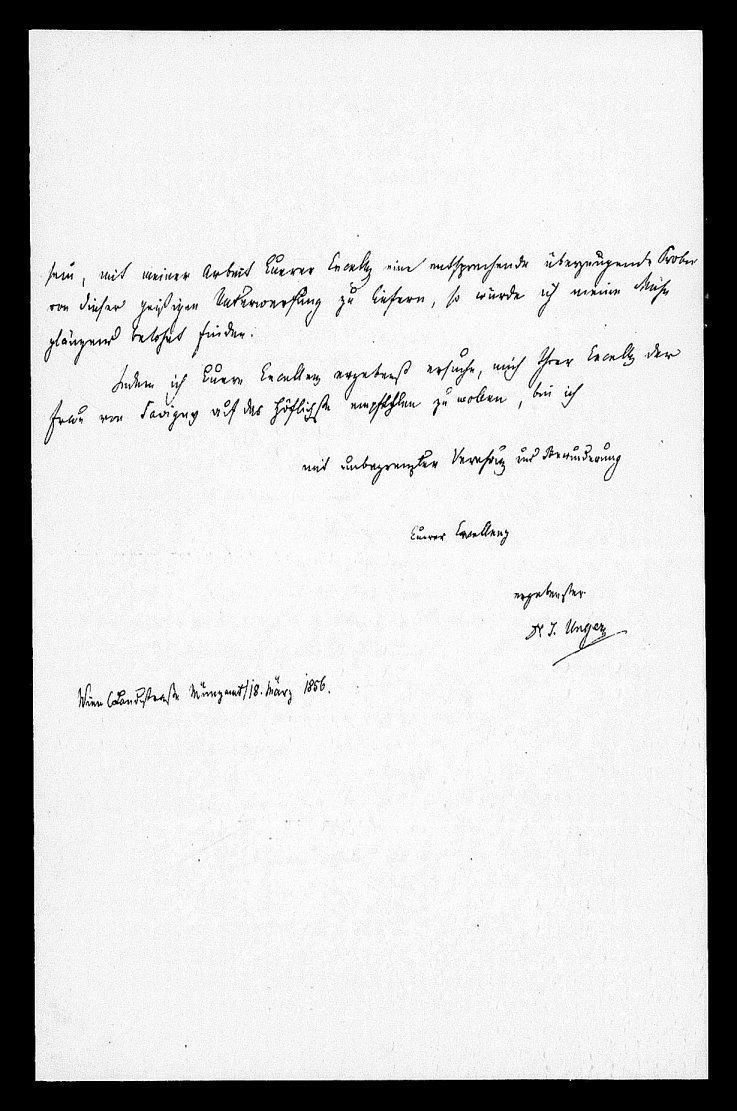 sein, mit meiner Arbeit Euerer Excellz eine entsprechende überzeugende Probe
von dieser geistigen Unterwerfung zu liefern, so würde ich meine Mühe
glänzend belohnt finden.
Indem ich Euere Excellenz ergebenst ersuche, mich Ihrer Excellz der
Frau von Savigny auf das Höflichste empfehlen zu wollen, bin ich
mit unbegrenzter Verehrung und Bewunderung
Euerer Excellenz
ergebenster
Dr J. Unger
Wien (Landstrasse Münzamt) 18. März 1856.